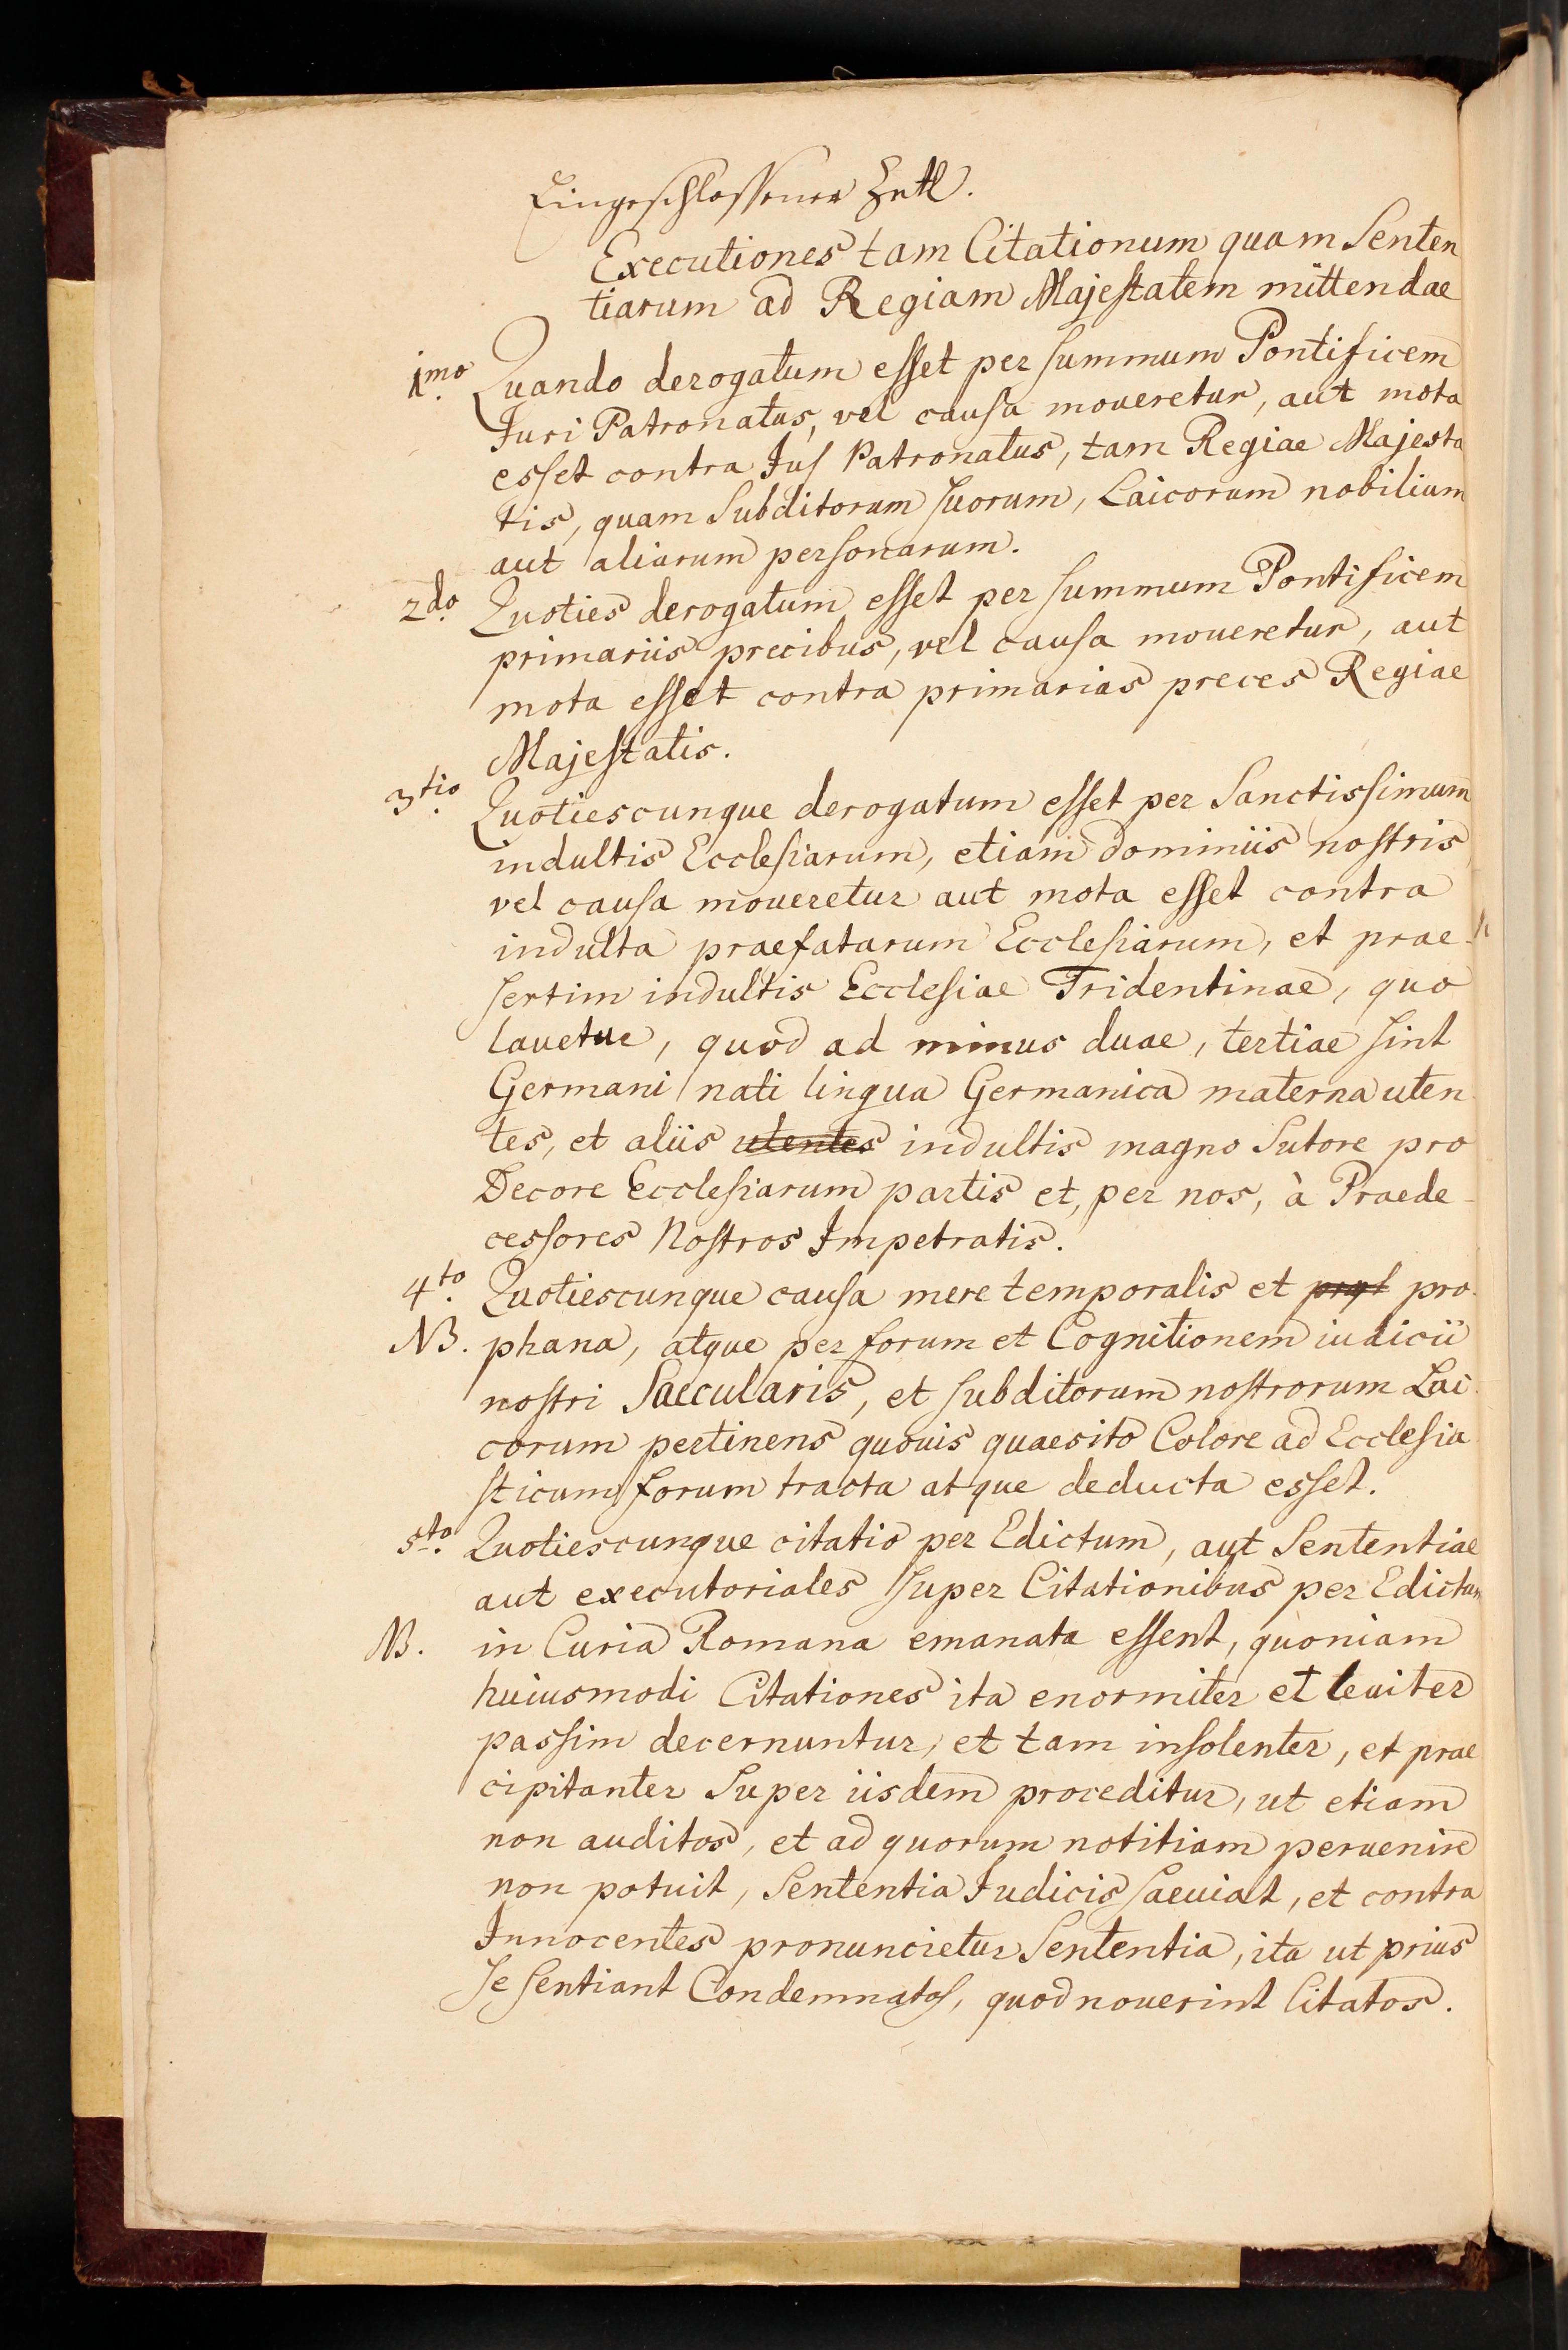 Eingeschlossener Zetl.
Executiones tam Citationum quam Senten
tiarum ad Regiam Majestatem mittendae
1mo. Quando derogatum esset per summum Pontificem
Juri Patronatus, vel causa moueretur, aut mota
esset contra Jus Patronatus, tam Regiae Majesta
tis, quam Subditorum suorum, Laicorum nobilium
aut aliarum personarum.
2do. Quoties derogatum esset per summum Pontificem
primariis precibus, vel causa moueretur, aut
mota esset contra primarias preces Regiae
Majestatis.
3tio. Quotiescunque derogatum esset per Sanctissimum
indultis Ecclesiarum, etiam dominiis nostris
vel causa moueretur aut mota esset contra
indulta praefatarum Ecclesiarum, et prae-
sertim indultis Ecclesiae Tridentinae, quo
lauetur, quod ad minus duae, tertiae sint
Germani nati lingua Germanica materna uten
tes, et aliis utentes indultis magno Sutore pro
Decore Ecclesiarum partis et, per nos, à Praede-
cessores Nostros Impetratis.
4to. Quotiescunque causa mere temporalis et pro
NB. phana, atque per forum et Cognitionem iudicii
nostri Saecularis, et subditorum nostrorum Lai
corum pertinens quouis quaesito Colore ad Ecclesia
sticum forum tracta atque deducta esset.
5to. Quotiescunque citatio per Edictum, aut Sententiae
aut executoriales super Citationibus per Edictum
NB. in Curia Romana emanata essent, quoniam
huiusmodi Citationes ita enormiter et leuiter
passim decernuntur, et tam insolenter, et prae
cipitanter Super iisdem proceditur, ut etiam
non auditos, et ad quorum notitiam peruenire
non potuit, Sententia Judicis saeuiat, et contra
Innocentes pronuncietur Sententia, ita ut prius
se sentiant Condemnatos, quod nouerint Citatos.